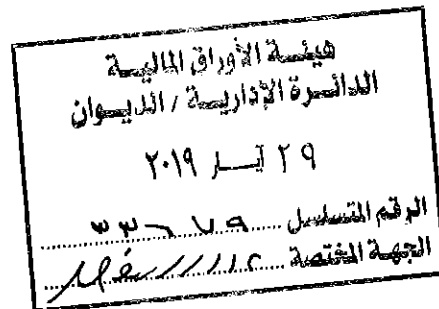 هيئة الأوراق المالية
الدائرة الإدارية / الديوان
٢٩ آيار ٢٠١٩
الرقم المتسلسل ٣٣٦٧٩
الجهة المختصة